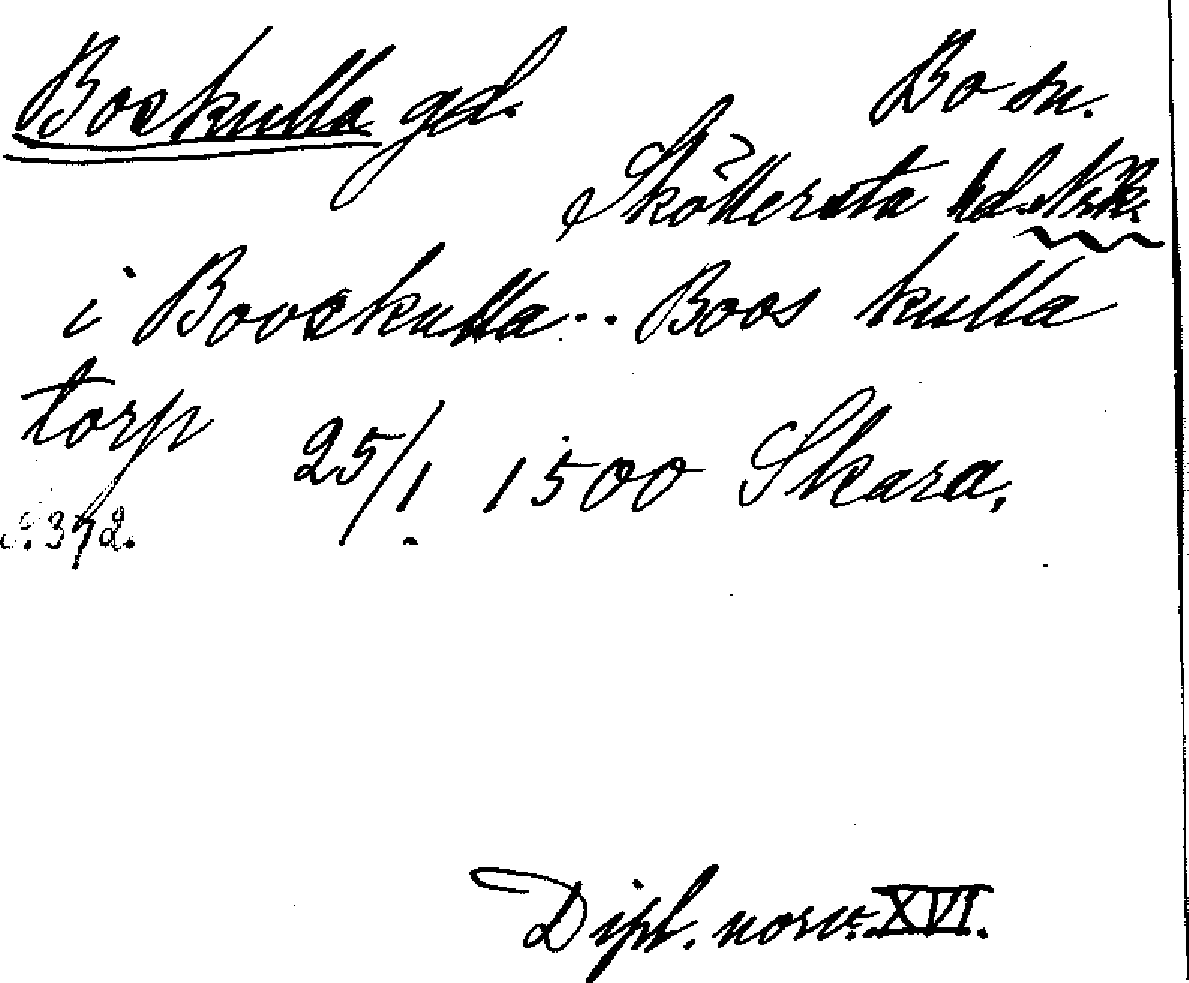 Boskulla gd.
Bo sn.
Sköllersta hd. Nrk.
i Booskulla .. Boos kulla
torp 25/1. 1500 Skara.
s. 372.
Dipl. norv. XVI.